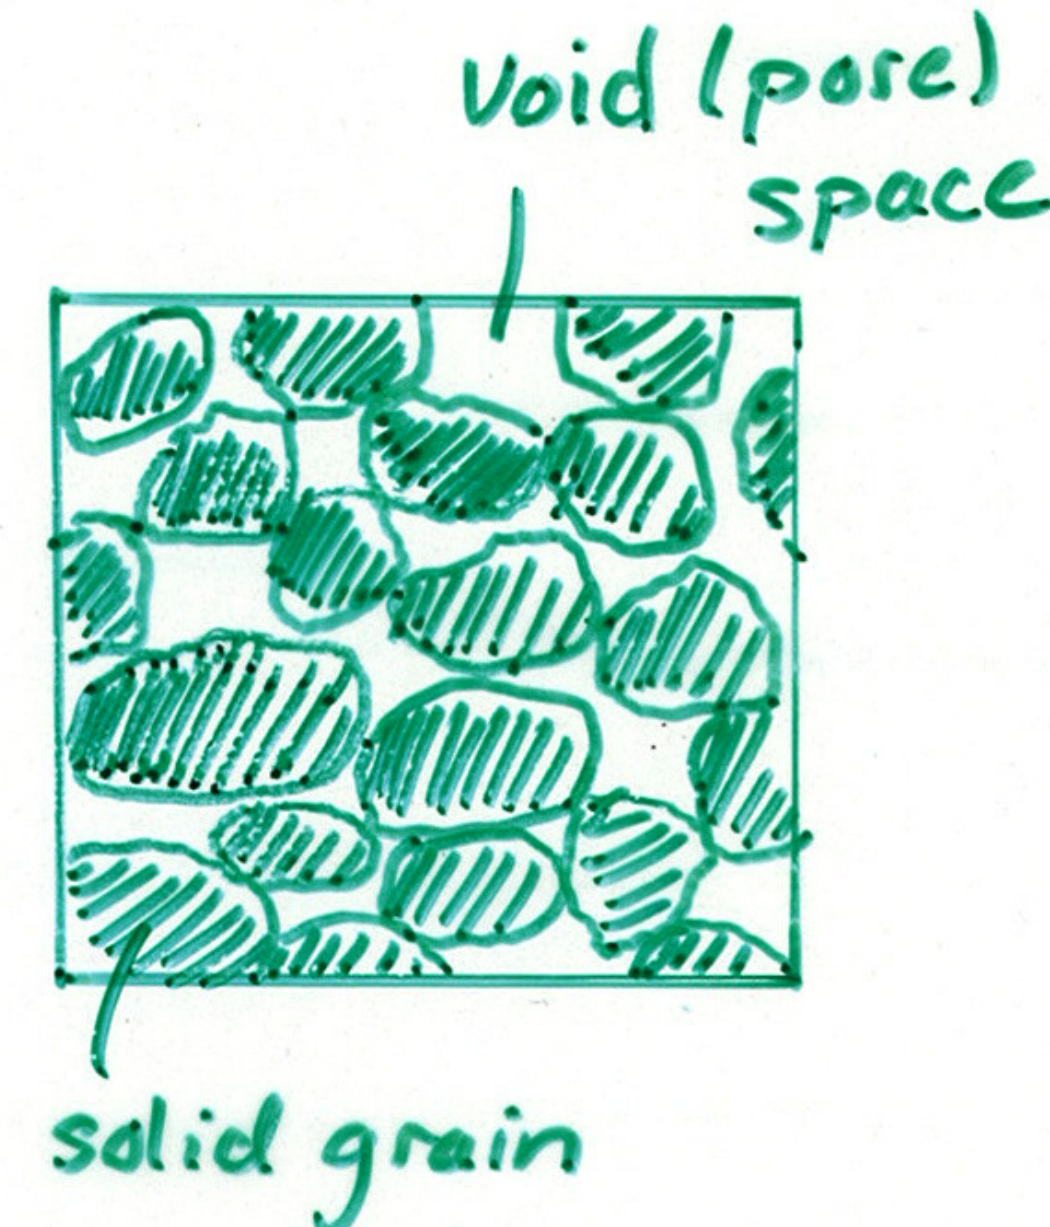 Void (pore)
space
solid grain